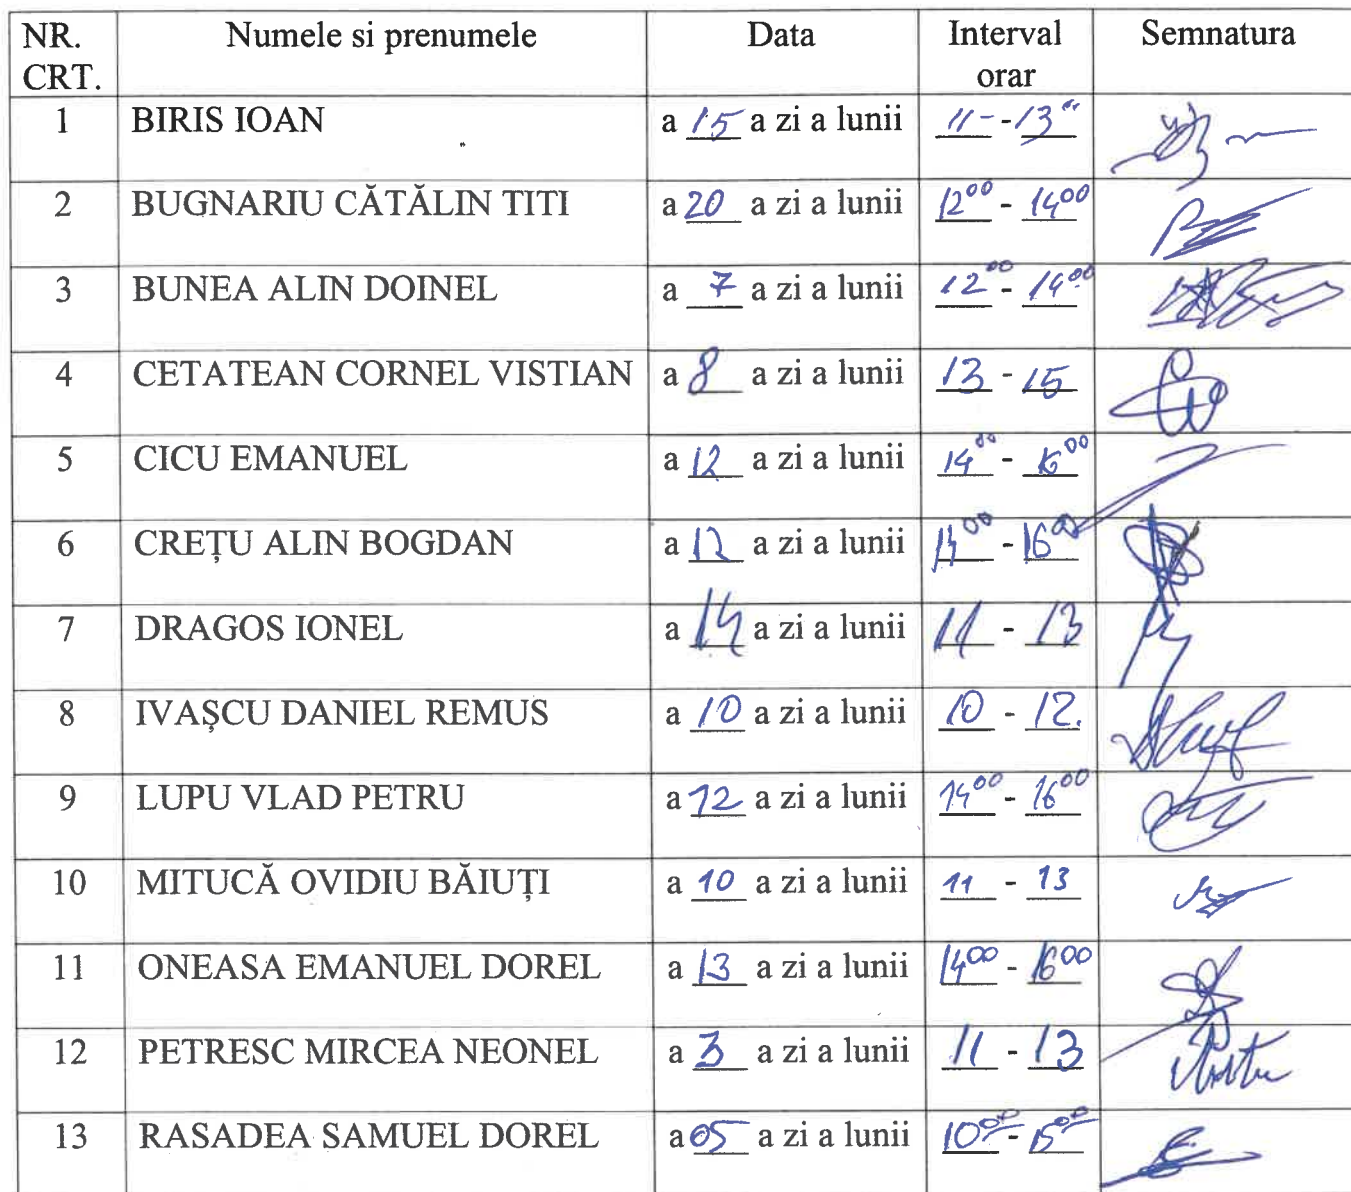 NR. CRT. Numele si prenumele Data Interval orar Semnatura
1 BIRIS IOAN a 15 a zi a lunii 11 - 13
2 BUGNARIU CĂTĂLIN TITI a 20 a zi a lunii 12⁰⁰ - 14⁰⁰
3 BUNEA ALIN DOINEL a 7 a zi a lunii 12⁰⁰ - 14⁰⁰
4 CETATEAN CORNEL VISTIAN a 8 a zi a lunii 13 - 15
5 CICU EMANUEL a 12 a zi a lunii 14⁰⁰ - 16⁰⁰
6 CREȚU ALIN BOGDAN a 12 a zi a lunii 14⁰⁰ - 16⁰⁰
7 DRAGOS IONEL a 14 a zi a lunii 11 - 13
8 IVAȘCU DANIEL REMUS a 10 a zi a lunii 10 - 12.
9 LUPU VLAD PETRU a 12 a zi a lunii 14⁰⁰ - 16⁰⁰
10 MITUCĂ OVIDIU BĂIUȚI a 10 a zi a lunii 11 - 13
11 ONEASA EMANUEL DOREL a 13 a zi a lunii 14⁰⁰ - 16⁰⁰
12 PETRESC MIRCEA NEONEL a 3 a zi a lunii 11 - 13
13 RASADEA SAMUEL DOREL a 05 a zi a lunii 10⁰⁰ - 15⁰⁰